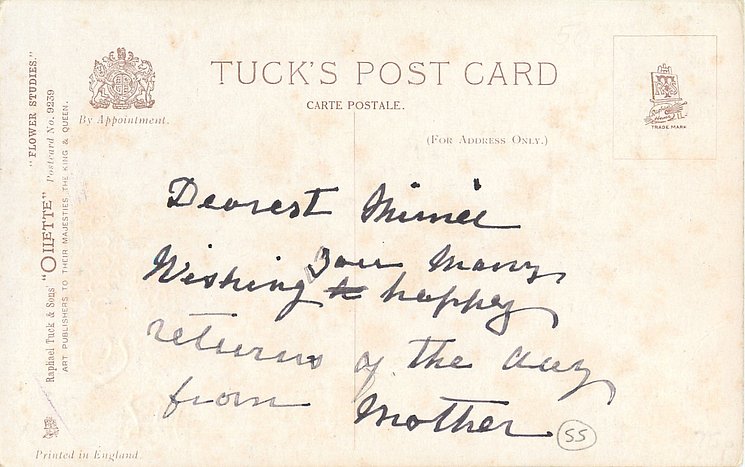 "FLOWER STUDIES."
Raphael Tuck & Sons "OILETTE" Postcard No. 9239
ART PUBLISHERS TO THEIR MAJESTIES THE KING & QUEEN.
By Appointment.
TUCK'S POST CARD
CARTE POSTALE.
(FOR ADDRESS ONLY.)
TRADE MARK
Dearest
you Many
Wishing happy
returns of the day
from Mother
SS
Printed in England.